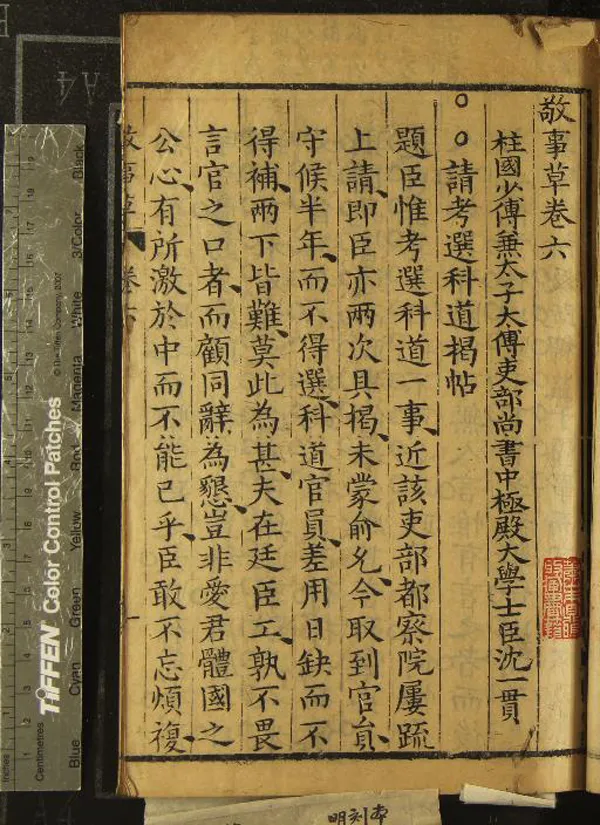 敬事草卷六
柱國少傅兼太子太傅吏部尚書中極殿大學士臣沈一貫
請考選科道揭帖
題臣惟考選科道一事近該吏部都察院屢疏
上請即臣亦兩次具揭未蒙俞允今取到官員
守候半年而不得選科道官員差用日缺而不
得補兩下皆難莫此為甚夫在廷臣工孰不畏
言官之口者而顧同辭為懇豈非愛君體國之
公心有所激於中而不能已乎臣敢不忘煩複
明刻本
A4
TIFFEN Color Control Patches
© The Tiffen Company, 2007
Blue Cyan Green Yellow Red Magenta White 3/Color Black
Inches
Centimetres